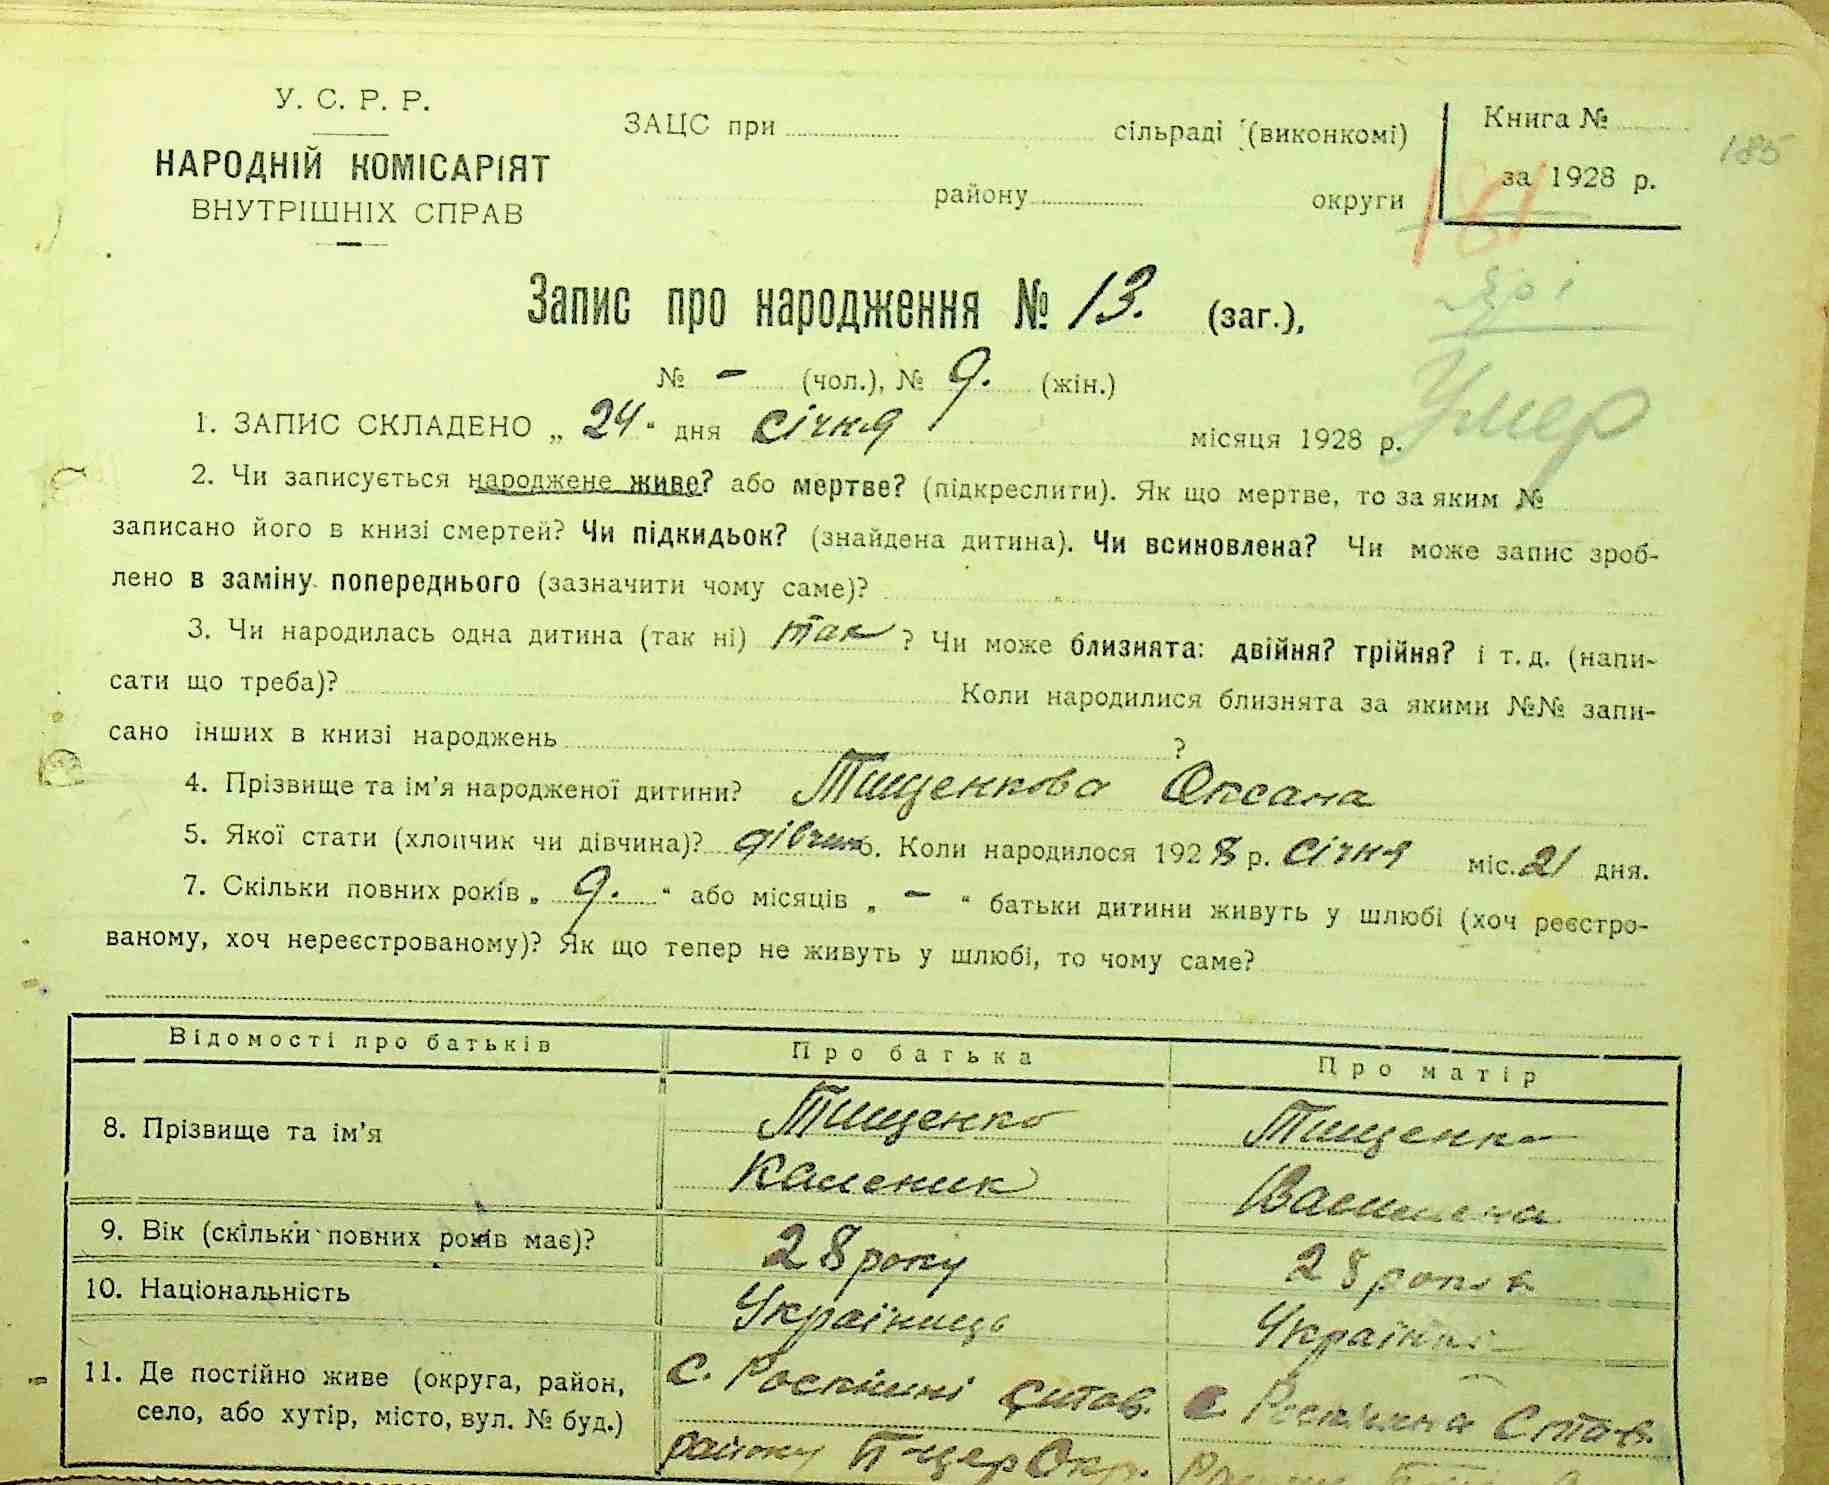 У. С. Р. Р.
НАРОДНІЙ КОМІСАРІЯТ
ВНУТРІШНІХ СПРАВ
ЗАЦС при сільраді (виконкомі)
району округи
Книга №
за 1928 р.
185
181
Запис про народження № 13. (заг.),
№ - (чол.), № 9. (жін.)
Умер
1. ЗАПИС СКЛАДЕНО „ 24 " дня січня місяця 1928 р.
2. Чи записується народжене живе? або мертве? (підкреслити). Як що мертве, то за яким №
записано його в книзі смертей? Чи підкидьок? (знайдена дитина). Чи всиновлена? Чи може запис зроб-
лено в заміну попереднього (зазначити чому саме)?
3. Чи народилась одна дитина (так ні) так ? Чи може близнята: двійня? трійня? і т. д. (напи-
сати що треба)? Коли народилися близнята за якими №№ запи-
сано інших в книзі народжень ?
4. Прізвище та ім’я народженої дитини? Тищенкова Оксана
5. Якої стати (хлопчик чи дівчина)? дівчин 6. Коли народилося 1928 р. січня міс. 21 дня.
7. Скільки повних років „ 9. " або місяців „ - " батьки дитини живуть у шлюбі (хоч реєстро-
ваному, хоч нереєстрованому)? Як що тепер не живуть у шлюбі, то чому саме?
Відомості про батьків Про батька Про матір
8. Прізвище та ім’я Тищенко Тищенко
Каленик
9. Вік (скільки повних років має)? 28 року 28 років
10. Національність Українець
11. Де постійно живе (округа, район, с. Став. с Став.
село, або хутір, місто, вул. № буд.) району Окр.